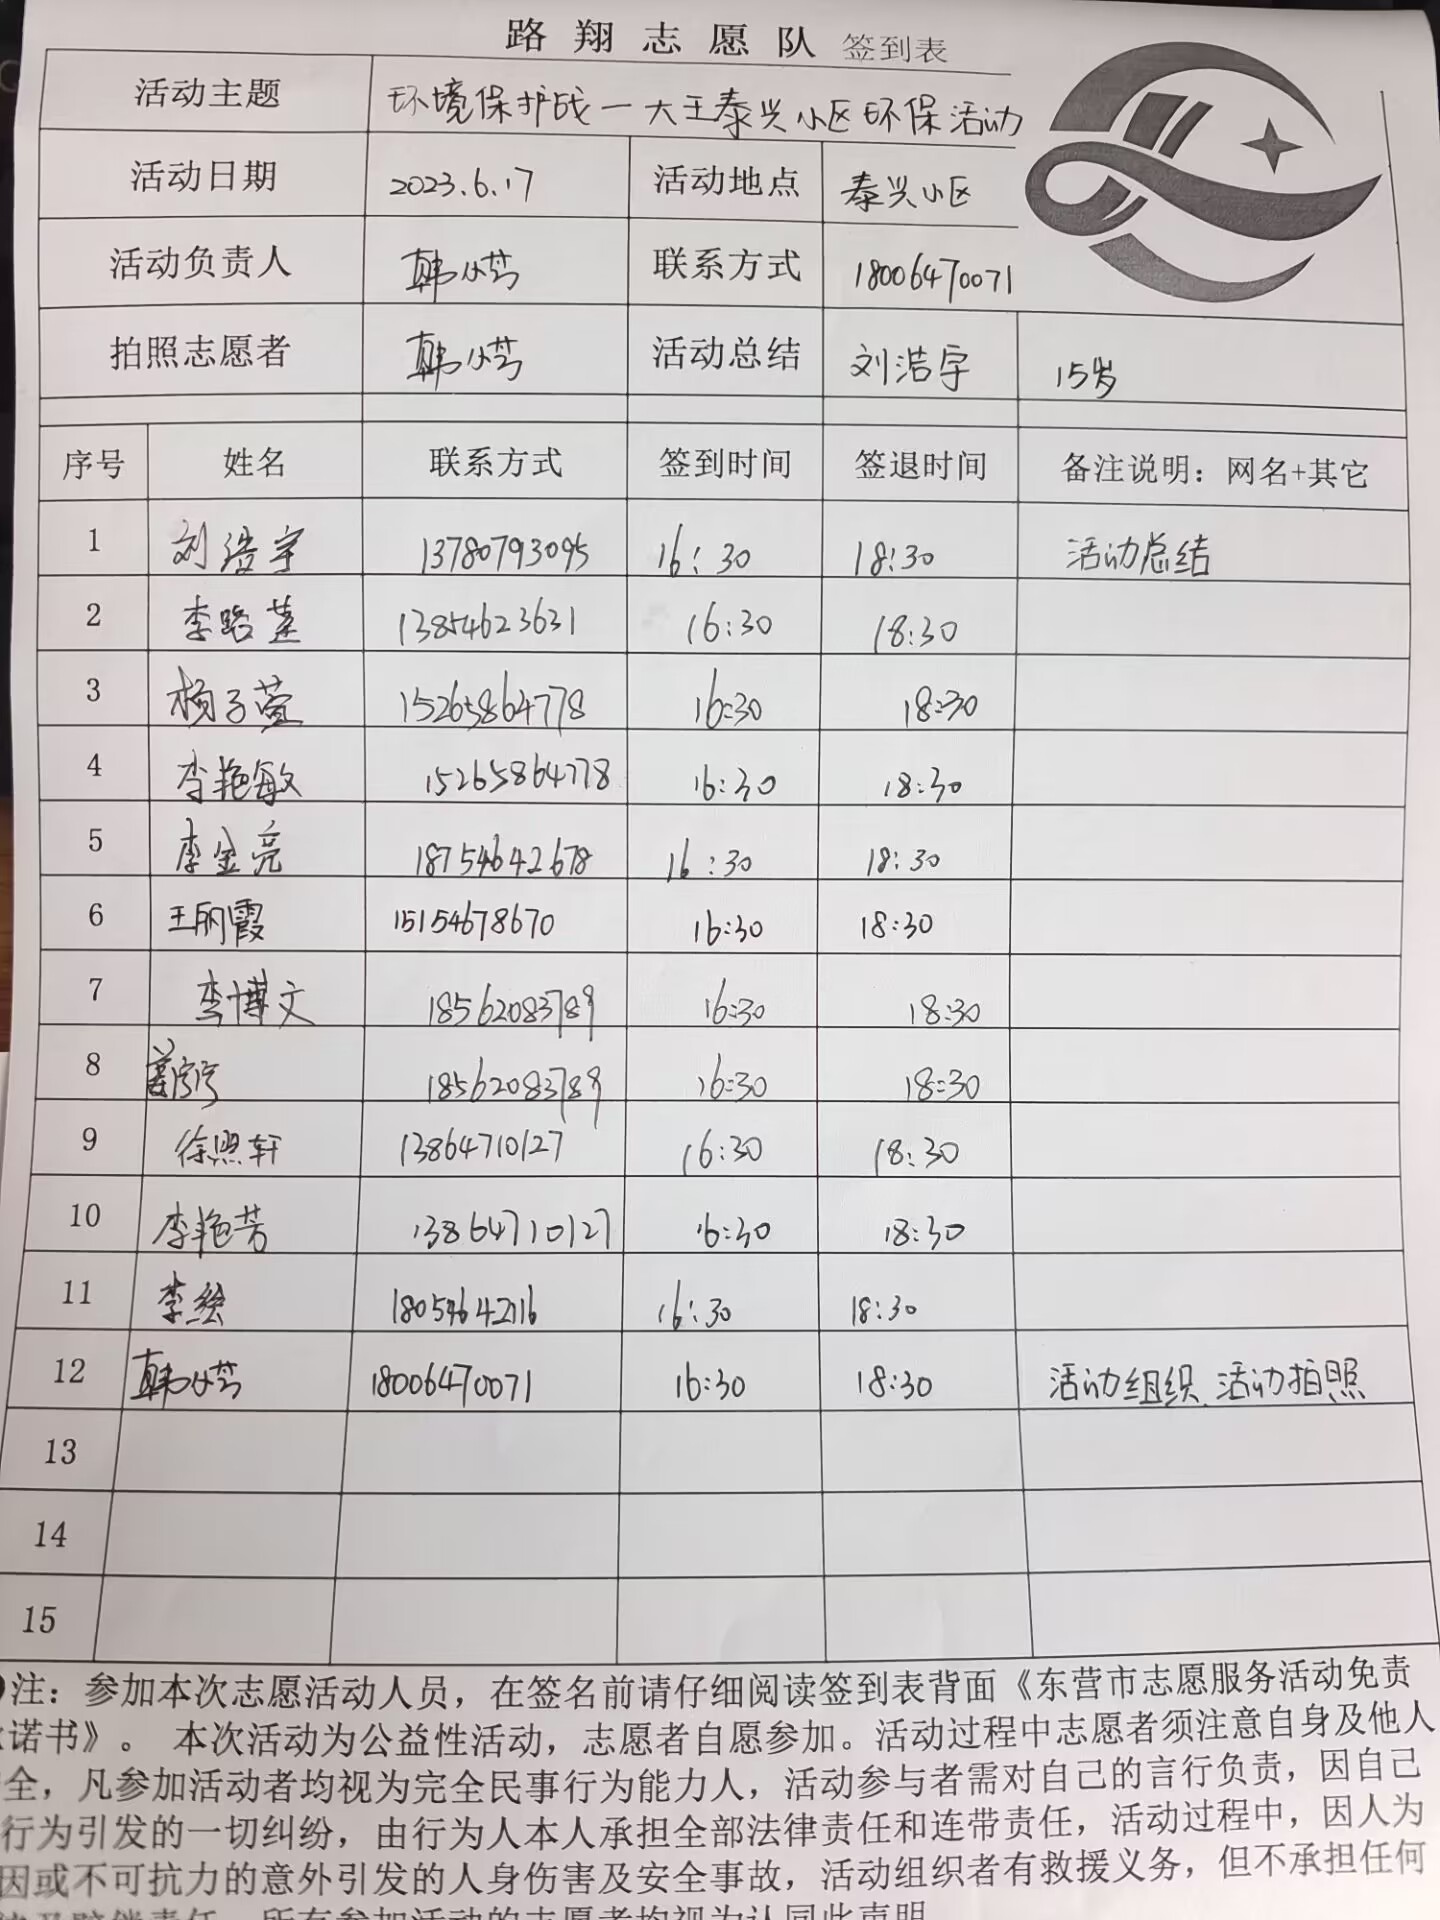 路翔志愿队 签到表
活动主题 环境保护战一大王泰兴小区环保活动
活动日期 2023.6.17 活动地点 泰兴小区
活动负责人 韩小芳 联系方式 18006470071
拍照志愿者 韩小芳 活动总结 刘浩宇 15岁
序号 姓名 联系方式 签到时间 签退时间 备注说明：网名+其它
1 刘浩宇 13780793095 16:30 18:30 活动总结
2 李路 13854623631 16:30 18:30
3 杨子萱 15265864778 16:30 18:30
4 李艳敏 15265864778 16:30 18:30
5 李金亮 18754642678 16:30 18:30
6 王丽霞 15154678670 16:30 18:30
7 李博文 18562083789 16:30 18:30
8 18562083789 16:30 18:30
9 徐照轩 13864710127 16:30 18:30
10 李艳芳 13864710127 16:30 18:30
11 李绘 18054642116 16:30 18:30
12 韩小芳 18006470071 16:30 18:30 活动组织、活动拍照
13
14
15
注：参加本次志愿活动人员，在签名前请仔细阅读签到表背面《东营市志愿服务活动免责
诺书》。 本次活动为公益性活动，志愿者自愿参加。活动过程中志愿者须注意自身及他人
全，凡参加活动者均视为完全民事行为能力人，活动参与者需对自己的言行负责，因自己
行为引发的一切纠纷，由行为人本人承担全部法律责任和连带责任，活动过程中，因人为
因或不可抗力的意外引发的人身伤害及安全事故，活动组织者有救援义务，但不承担任何
赔偿责任。所有参加活动的志愿者均视为认同此声明